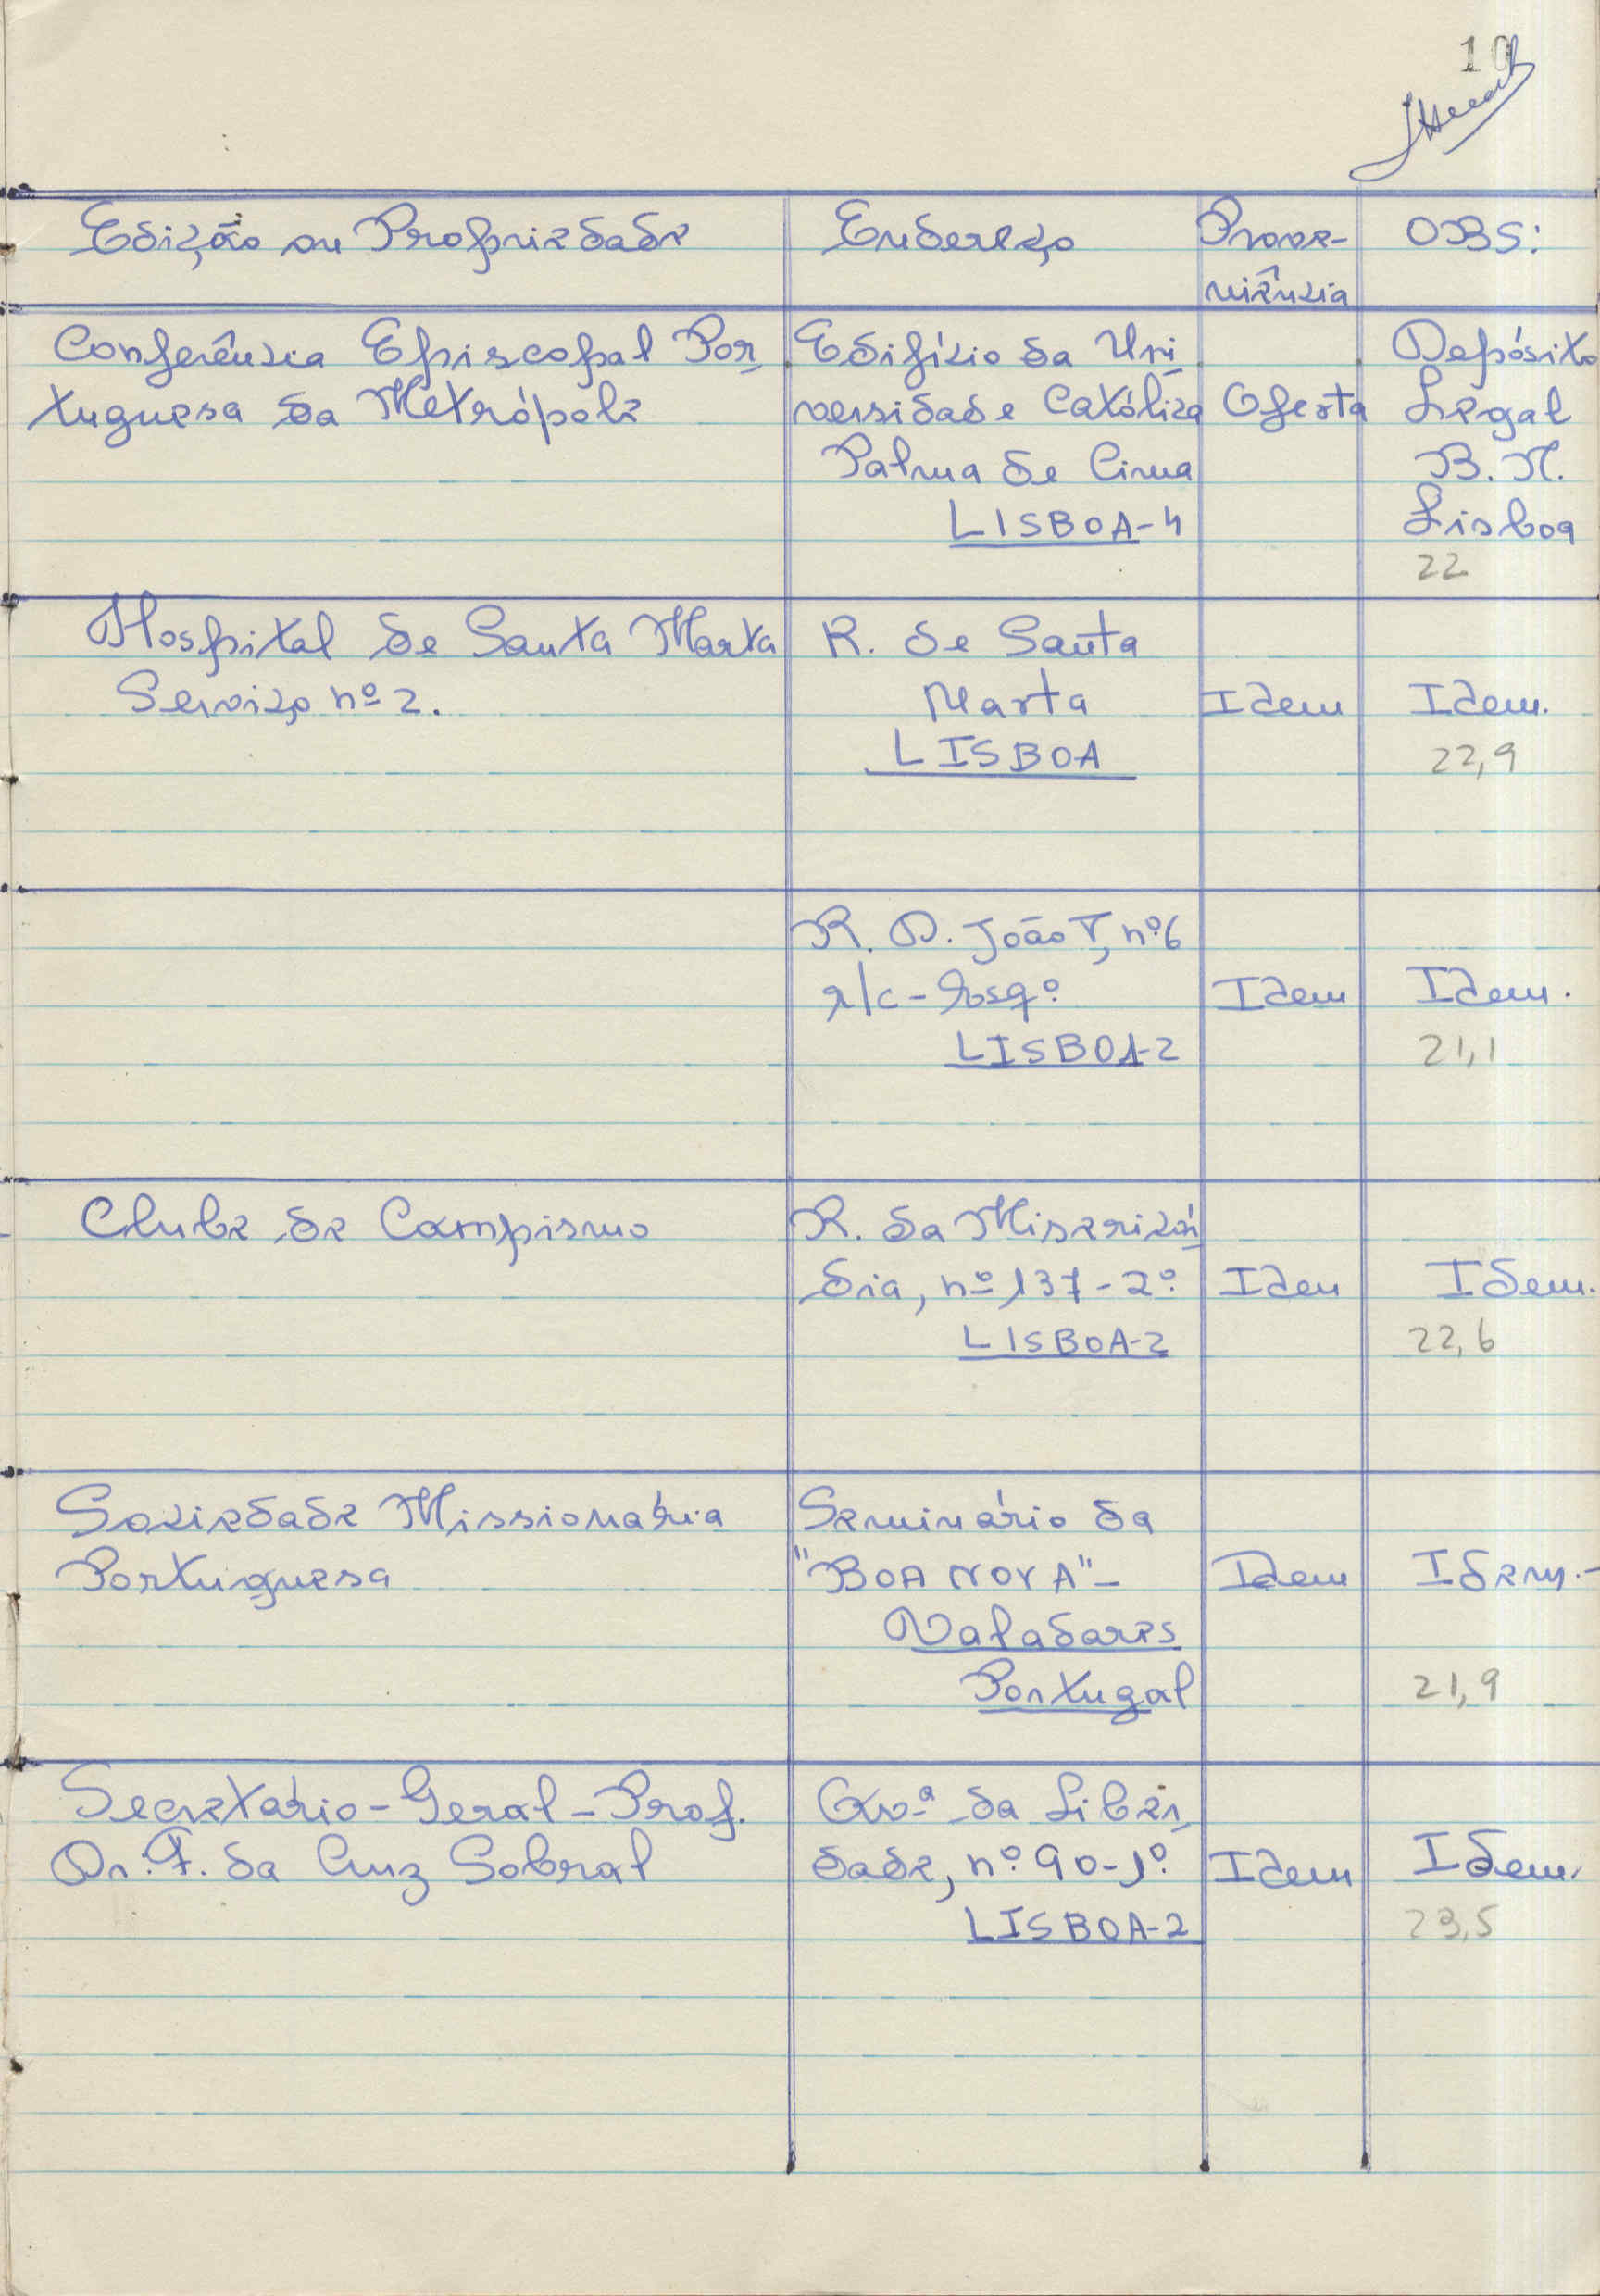 10
Edição ou Propriedade
Endereço
Prove-
niência
OBS:
Conferência Episcopal Por
tuguesa da Metrópole
Edifício da Uni
versidade Católica
Palma de Cima
LISBOA-4
Oferta
Depósito
Legal
B. N.
Lisboa
22
Hospital de Santa Marta
Serviço nº 2.
R. de Santa
Marta
LISBOA
Idem
Idem.
22,9
R. D. João V, nº 6
r/c - Esqº
LISBOA-2
Idem
Idem.
21,1
Clube de Campismo
R. da Misericór
dia, nº 137-2º
LISBOA-2
Idem
Idem.
22,6
Sociedade Missionária
Portuguesa
Seminário da
"BOA NOVA"-
Valadares
Portugal
Idem
Idem.-
21,9
Secretário-Geral-Prof.
Dr. F. da Cruz Sobral
Avª da Liber
dade, nº 90-1º
LISBOA-2
Idem
Idem.
23,5